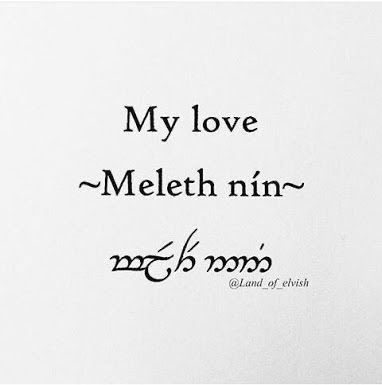 My love
~Meleth nín~
@Land_of_elvish